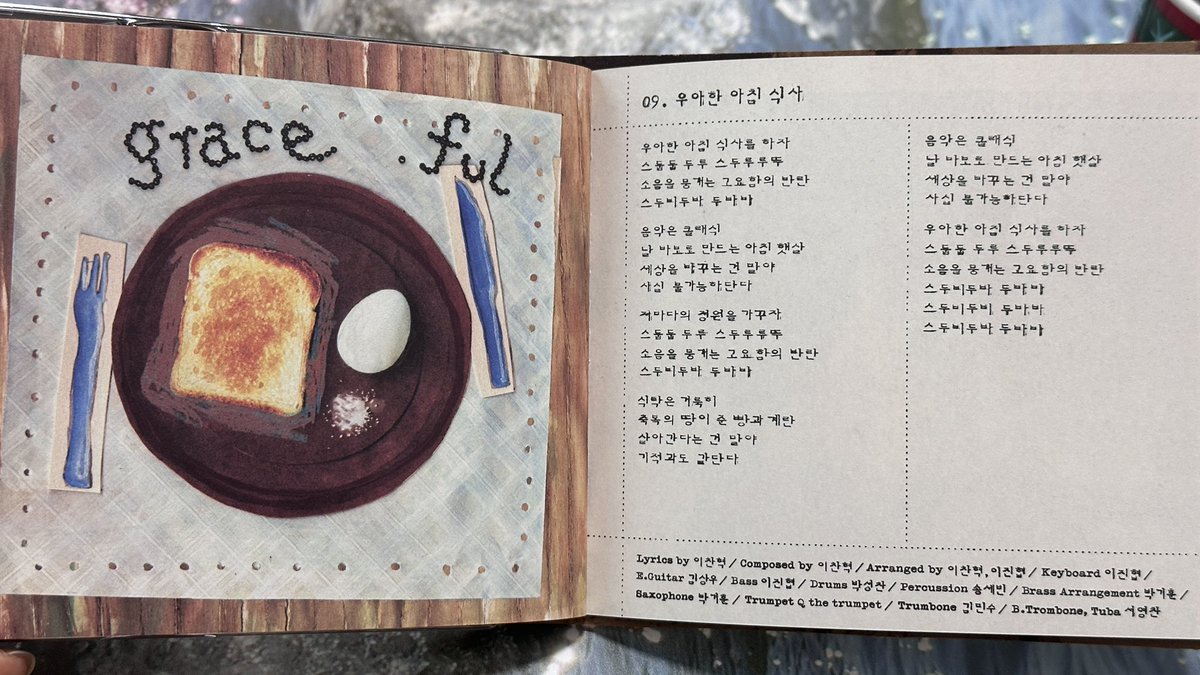 grace. .ful
09. 우아한 아침 식사
우아한 아침 식사를 하자
스둠둠 두루 스두루루뚝
소음을 뭉개는 고요함의 반란
스두비두바 두바바
음악은 클래식
날 바보로 만드는 아침 햇살
세상을 바꾸는 건 말야
사실 불가능하단다
저마다의 정원을 가꾸자
스둠둠 두루 스두루루뚝
소음을 뭉개는 고요함의 반란
스두비두바 두바바
식탁은 거룩히
축복의 땅이 준 빵과 계란
살아간다는 건 말야
기적과도 같단다
음악은 클래식
날 바보로 만드는 아침 햇살
세상을 바꾸는 건 말야
사실 불가능하단다
우아한 아침 식사를 하자
스둠둠 두루 스두루루뚝
소음을 뭉개는 고요함의 반란
스두비두바 두바바
스두비두비 두바바
스두비두바 두바바
Lyrics by 이찬혁 / Composed by 이찬혁 / Arranged by 이찬혁, 이진협 / Keyboard 이진협 /
E.Guitar 김상우 / Bass 이진협 / Drums 박성찬 / Percussion 송세빈 / Brass Arrangement 박기훈 /
Saxophone 박기훈 / Trumpet Q the trumpet / Trumbone 김민수 / B.Trombone, Tuba 서영찬